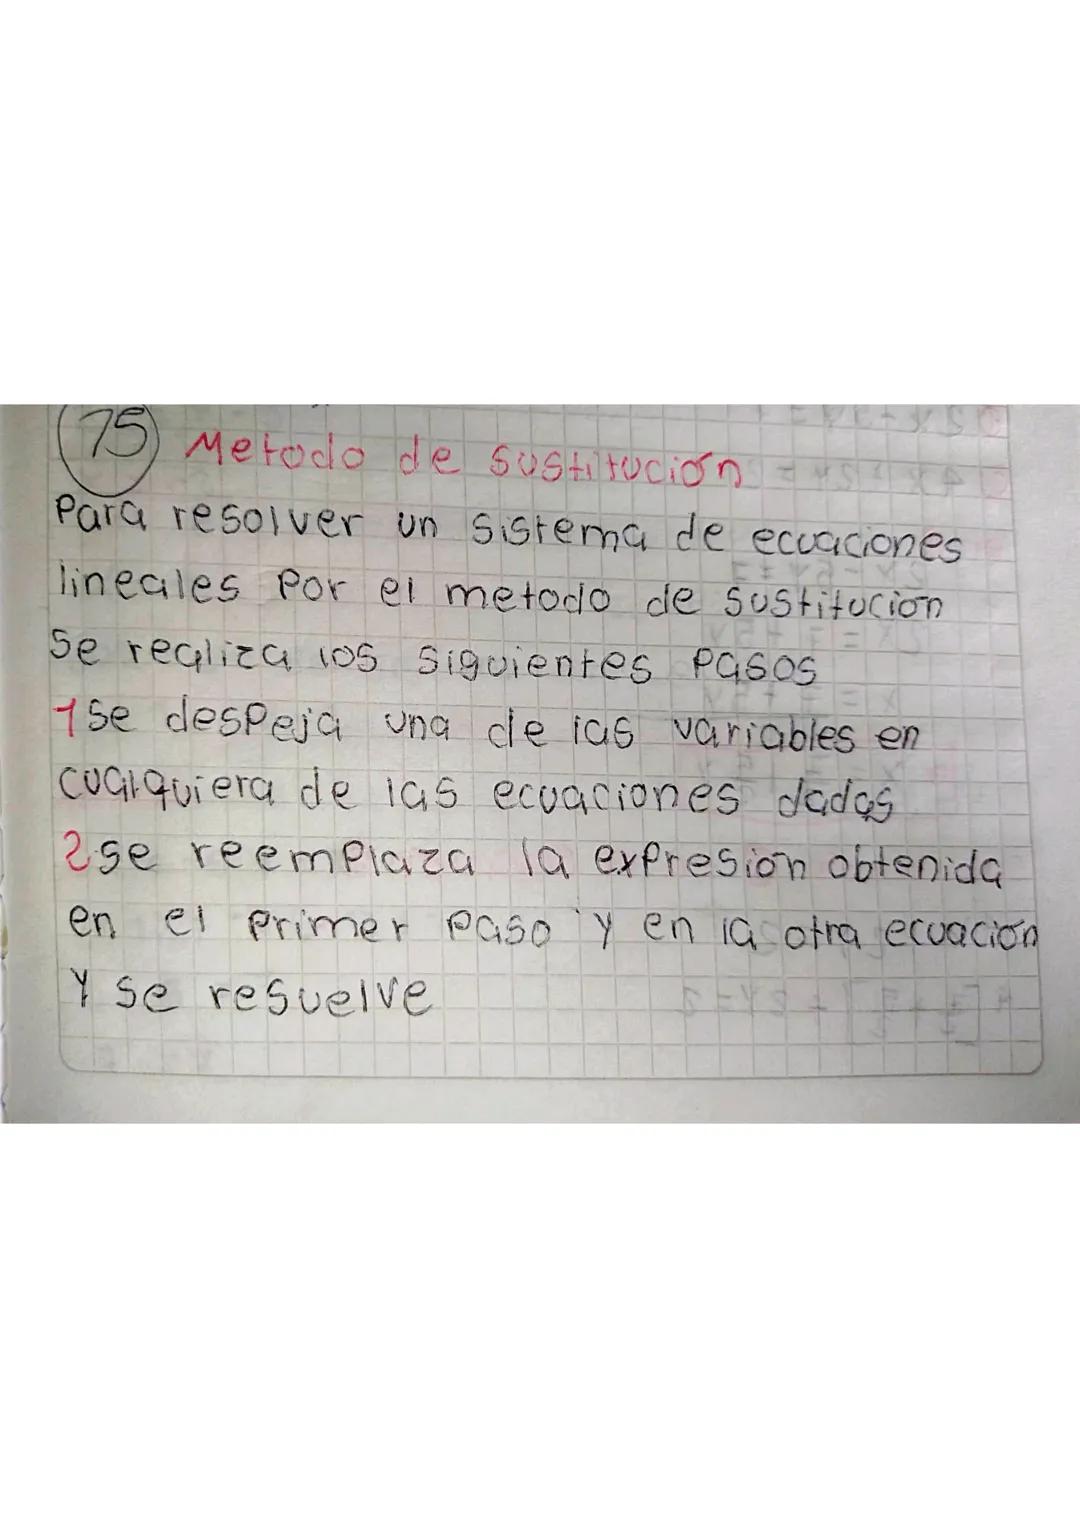 75 Metodo de sustitución
Para resolver un sistema de ecuaciones
lineales por el metodo de sustitucion
se realiza los siguientes pasos
1 se despeja una de las variables en
cualquiera de las ecuaciones dadas
2 se reemplaza la expresion obtenida
en el primer paso y en la otra ecuacion
y se resuelve